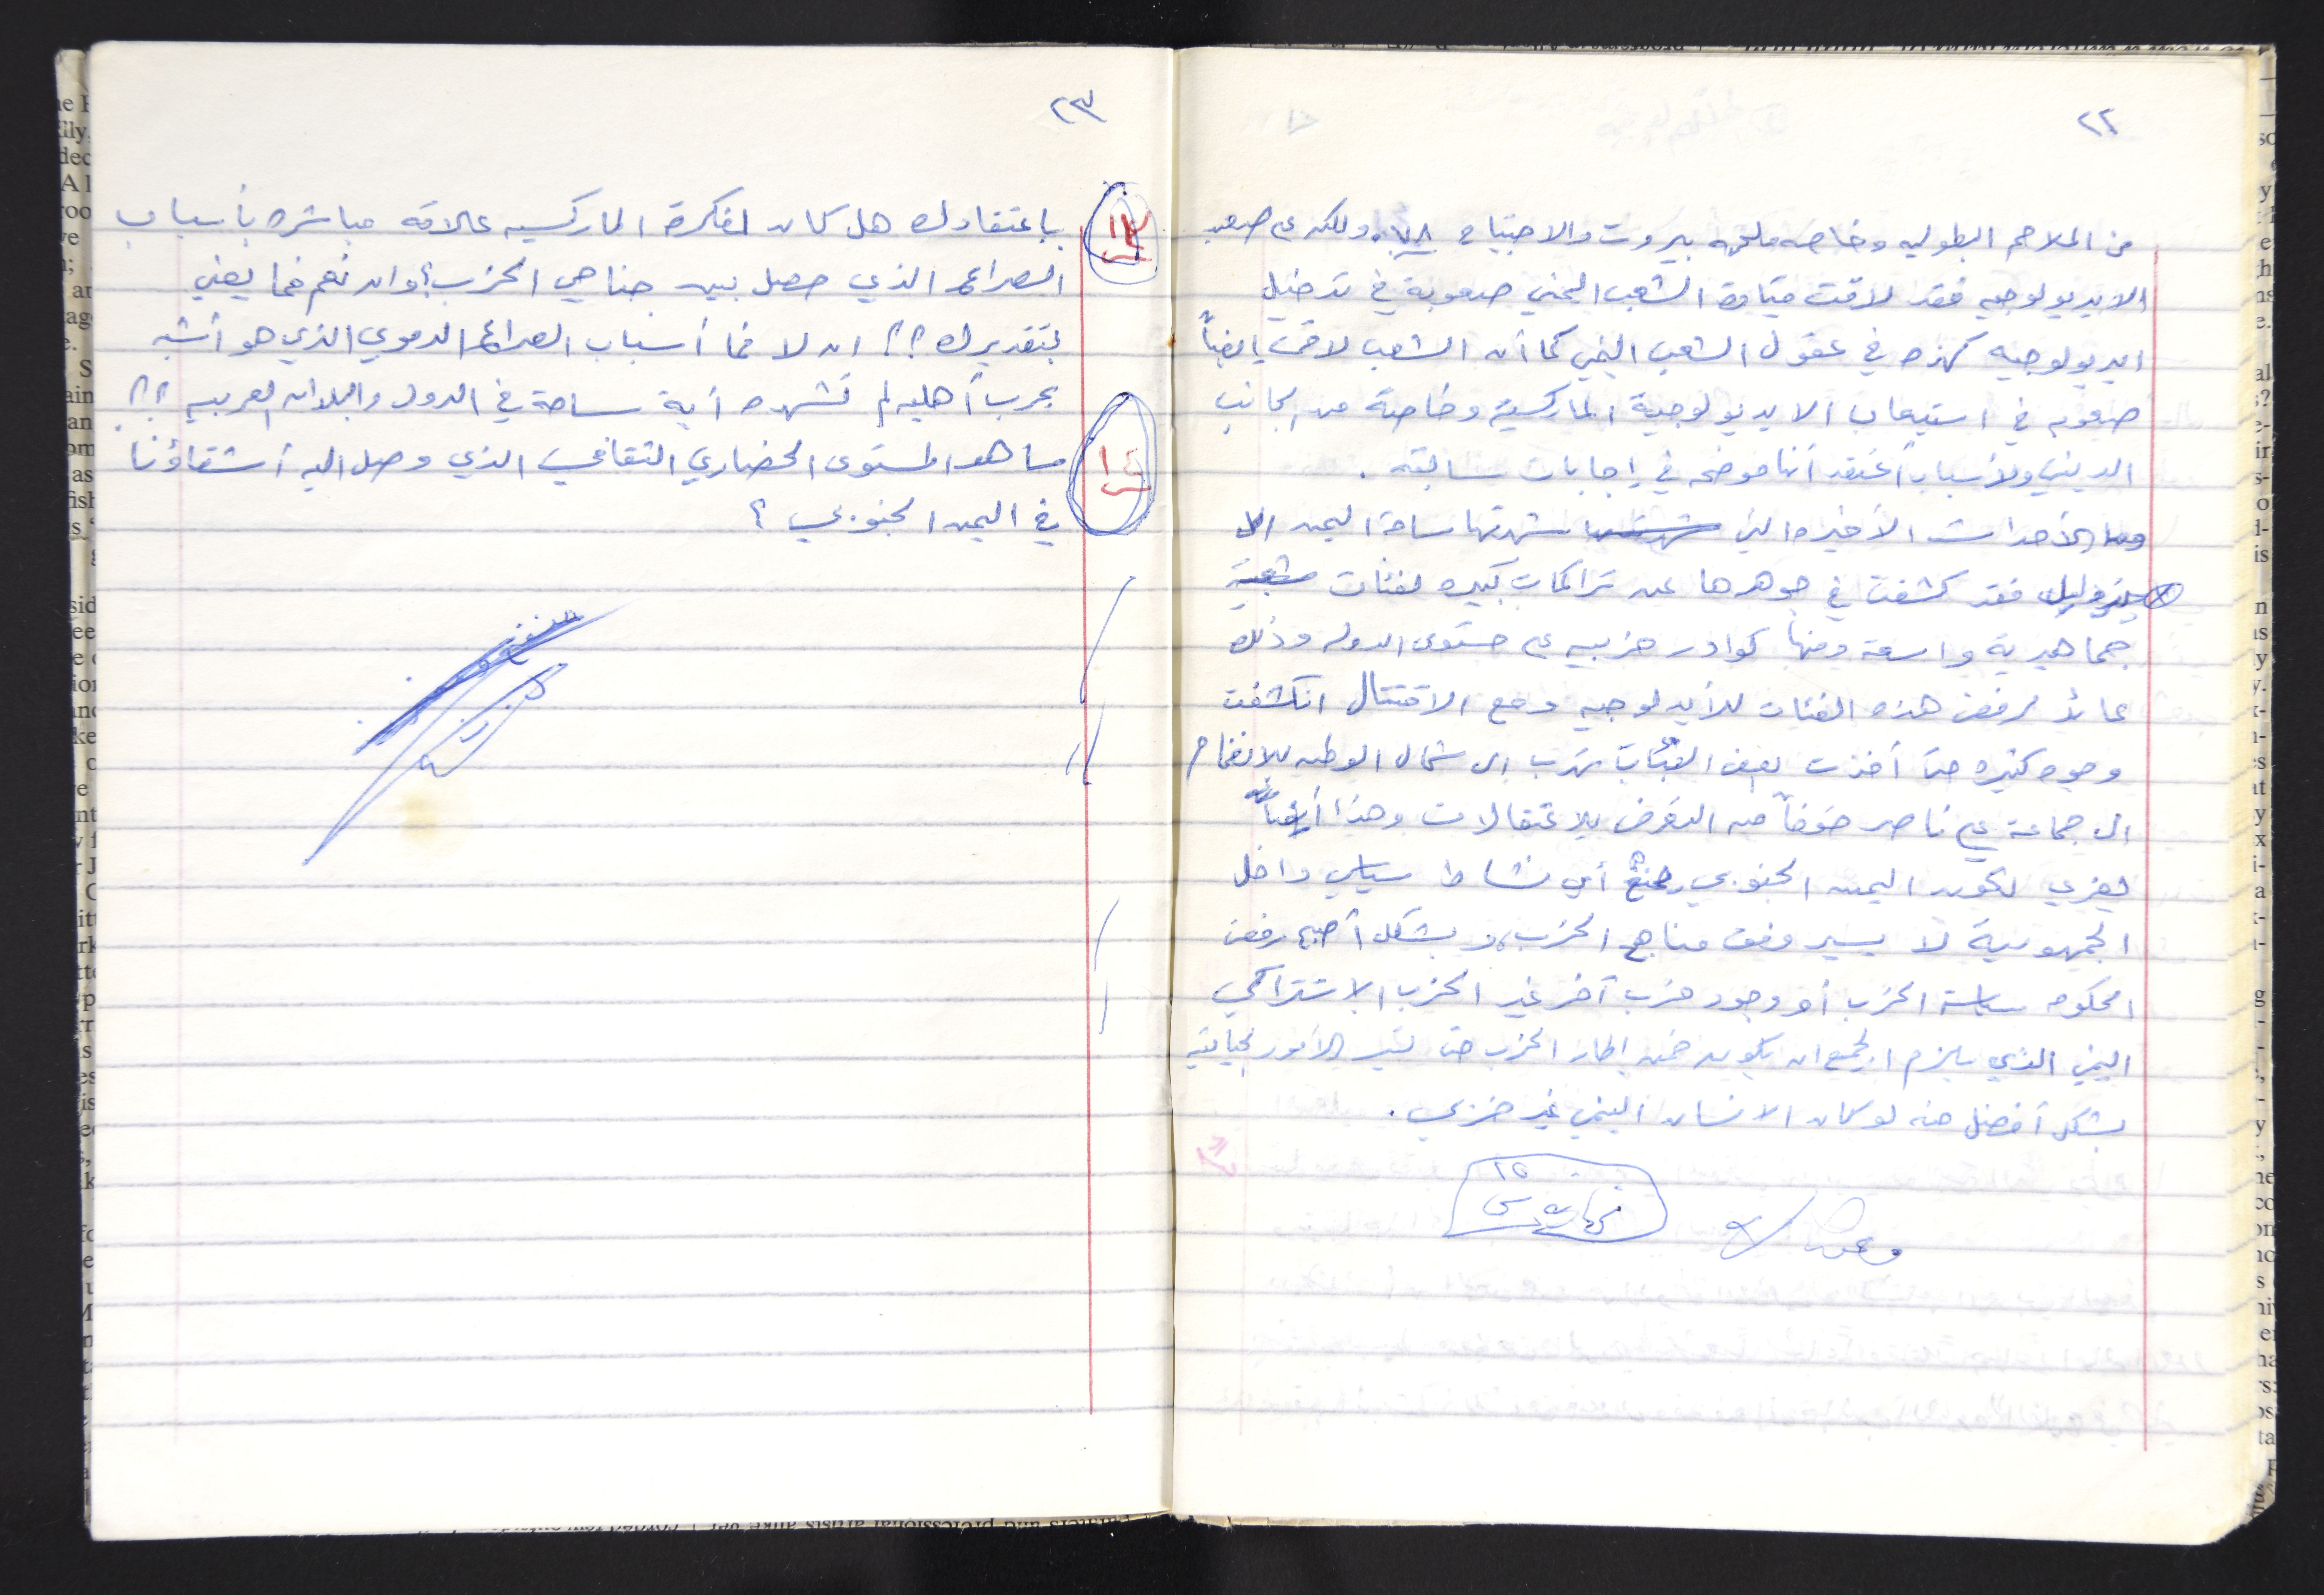 ٢٢
من الملاحم البطوليه وخاصه ملحمه بيروت والاجتياح ٧٨. ولكن على صعيد
الايديولوجيه فقد لاقت قيادة الشعب اليمني صعوبة في تدخيل
ايديولوجيه كهذه في عقول الشعب اليمني كما أن الشعب لاقى إيضاً
صعوبه في استيعاب الايديولوجية الماركسية وخاصة من الجانب
الديني ولأسباب أعتقد أنها موضحه في إجابات سابقه .
وما الأحداث الأخيره التي شهدتها ساحة اليمن الا
فقد كشفت في جوهرها عن تراكمات كبيره لفئات شعبية
جماهيرية واسعة ومنها كوادر حزبيه على مستوى الدوله وذلك
عائد لرفض هذه الفئات للأيدلوجيه ومع الاقتتال انكشفت
وجوه كثيره حتى أخذت بعض الفئات تهرب الى شمال الوطن للانضمام
الى جماعة علي ناصر خوفاً من التعرض للاعتقالات وهذا أيضاً
يعزي لكون اليمن الجنوبي يمنع أي نشاط سياسي داخل
الجمهورية لا يسير وفق مناهج الحزب، وبشكل أصح رفض
الحكومه سياسة الحزب أو وجود حزب آخر غير الحزب الاشتراكي
اليمني الذي يلزم الجميع ان يكون ضمن إطار الحزب حتى تسير الأمور الحياتية
بشكل أفضل منه لو كان الانسان اليمني غير حزبي .
نهاية س ١٥
٢٣
١٣ س باعتقادك هل كان لفكرة الماركسيه علاقه مباشره بأسباب
الصراع الذي حصل بين جناحي الحزب؟ وان نعم فما يعني
بتقديرك ؟؟ ان لا فما أسباب الصراع الدموي الذي هو أشبه
بحرب أهليه لم تشهده أية ساحة في الدول والبلدان العربيه ؟؟
١٤ س ما هو المستوى الحضاري الثقافي الذي وصل اليه أشقاؤنا
في اليمن الجنوبي ؟